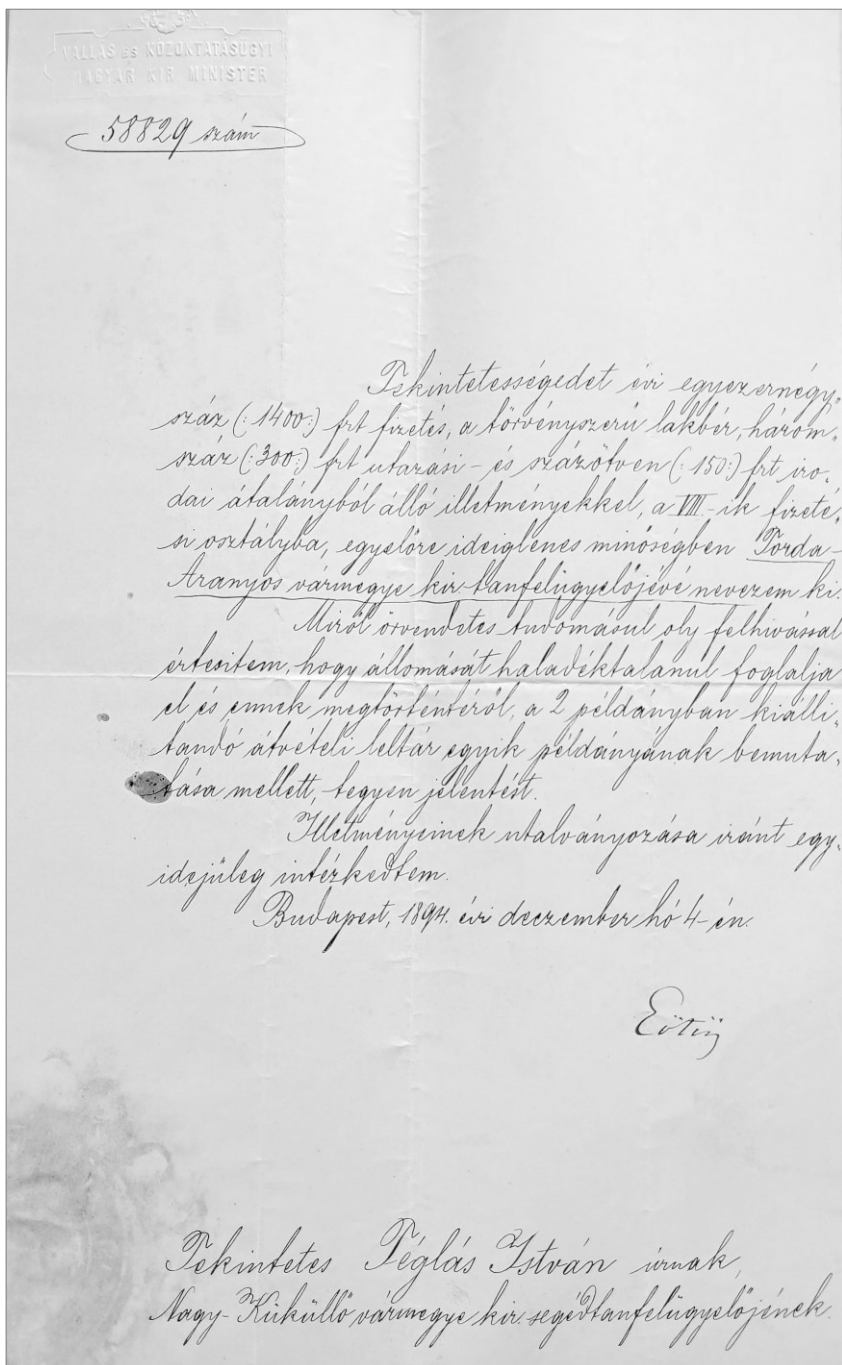 VALLÁS ÉS KÖZOKTATÁSÜGYI
MAGYAR KIR MINISTER
58829 szám
Tekintetességedet évi egyezernégy-
száz (: 1400:) frt fizetés, a törvényszerű lakbér, három-
száz (: 300:) frt utazási - és százötven (: 150:) frt iro-
dai átalányból álló illetményekkel, a VIII.-ik fizeté-
si osztályba, egyelőre ideiglenes minőségben Torda-
Aranyos vármegye kir. tanfelügyelőjévé nevezem ki.
Miről örvendetes tudomásul oly felhivással
értesitem, hogy állomását haladéktalanul foglalja
el és ennek megtörténtéről, a 2 példányban kiálli-
tandó átvételi leltár egyik példányának bemuta-
tása mellett, tegyen jelentést.
Illetményeinek utalványozása iránt egy-
idejüleg intézkedtem.
Budapest, 1894. évi deczember hó 4-én.
Tekintetes Téglás István úrnak,
Nagy-Küküllő vármegye kir. segédtanfelügyelőjének.